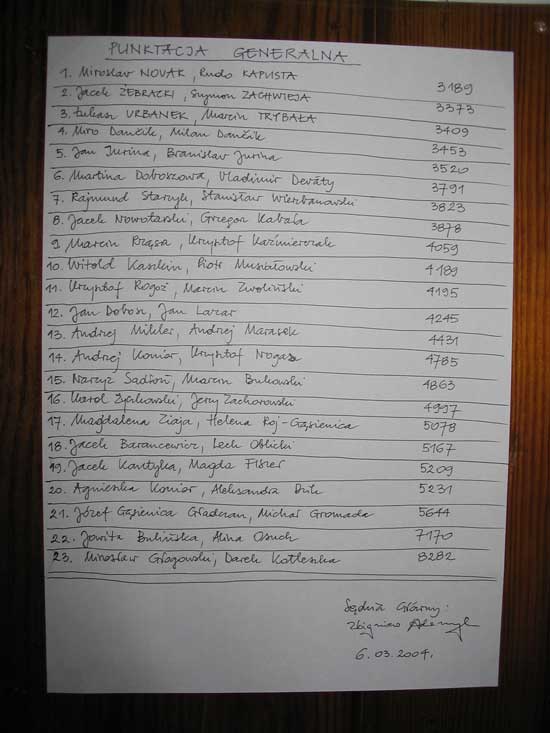 PUNKTACJA GENERALNA
1. Mirosław NOVAK, Rudo KAPUSTA 3189
2. Jacek ŻEBRACKI, Szymon ZACHWIEJA 3373
3. Łukasz URBANEK, Marcin TRYBAŁA 3409
4. Miro Dančík, Milan Dančík 3453
5. Jan Jurina, Branislav Jurina 3520
6. Martina Doboszowa, Vladimir Deváty 3791
7. Rajmund Starzyk, Stanisław Wierbanowski 3823
8. Jacek Nowotarski, Grzegorz Kabała 3878
9. Marcin Rząsa, Krzysztof Kaźmierczak 4059
10. Witold Kaszkin, Piotr 4189
11. Krzysztof Rogoż, Marcin Zwoliński 4195
12. Jan Dobosz, Jan Lazar 4245
13. Andrzej Mikler, Andrzej Marasek 4431
14. Andrzej Konior, Krzysztof 4785
15. Narcyz Sadłoń, Marcin Bukowski 4863
16. Karol Życzkowski, Jerzy Zachorowski 4997
17. Magdalena Ziaja, Helena Roj-Gąsienica 5078
18. Jacek Barancewicz, Lech Oblicki 5167
19. Jacek Kantyka, Magda 5209
20. Agnieszka Konior, Aleksandra 5231
21. Józef Gąsienica Gładczan, Michał Gromada 5644
22. Jowita Bulińska, Alina Osuch 7170
23. Mirosław Głogowski, Darek Kotlaszka 8282
Sędzia Główny:
Zbigniew
6.03.2004.